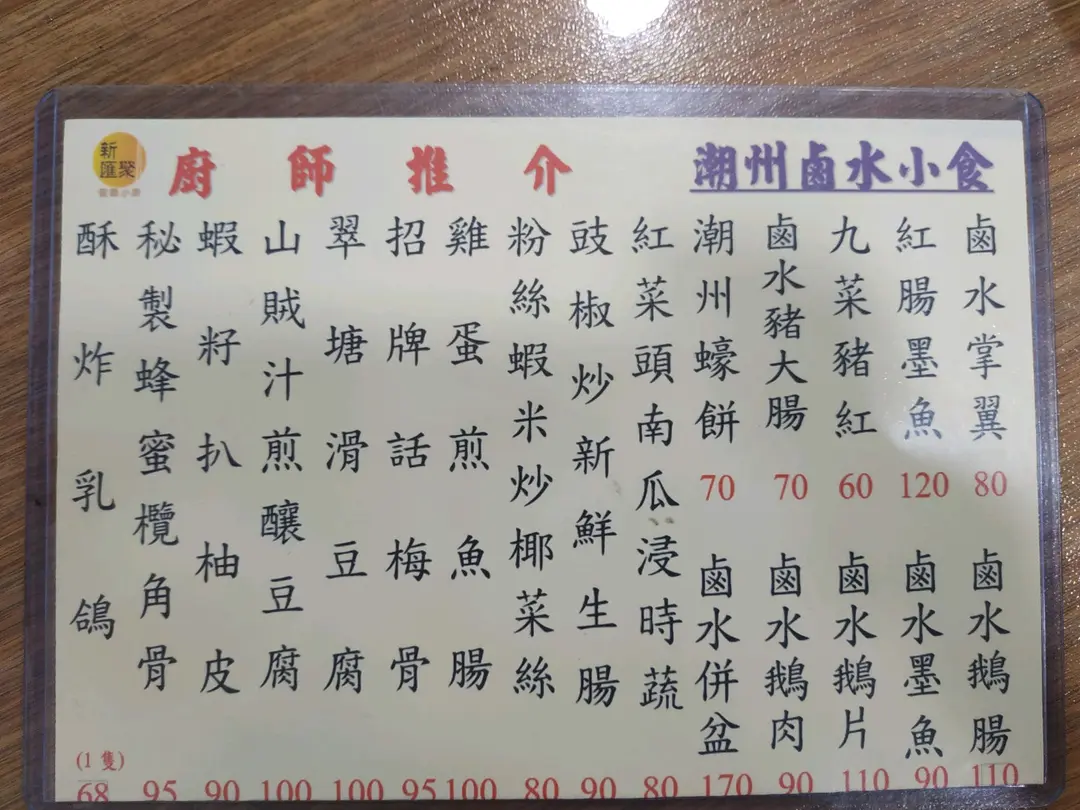 新
匯聚
廚師推介
酥炸乳鴿
(1隻)
68
秘製蜂蜜欖角骨
95
蝦籽扒柚皮
90
山賊汁煎釀豆腐
100
翠塘滑豆腐
100
招牌話梅骨
95
雞蛋煎魚腸
100
粉絲蝦米炒椰菜絲
80
豉椒炒新鮮生腸
90
紅菜頭南瓜浸時蔬
80
潮州鹵水小食
潮州蠔餅
70
鹵水豬大腸
70
九菜豬紅
60
紅腸墨魚
120
鹵水掌翼
80
鹵水併盆
170
鹵水鵝肉
90
鹵水鵝片
110
鹵水墨魚
90
鹵水鵝腸
110